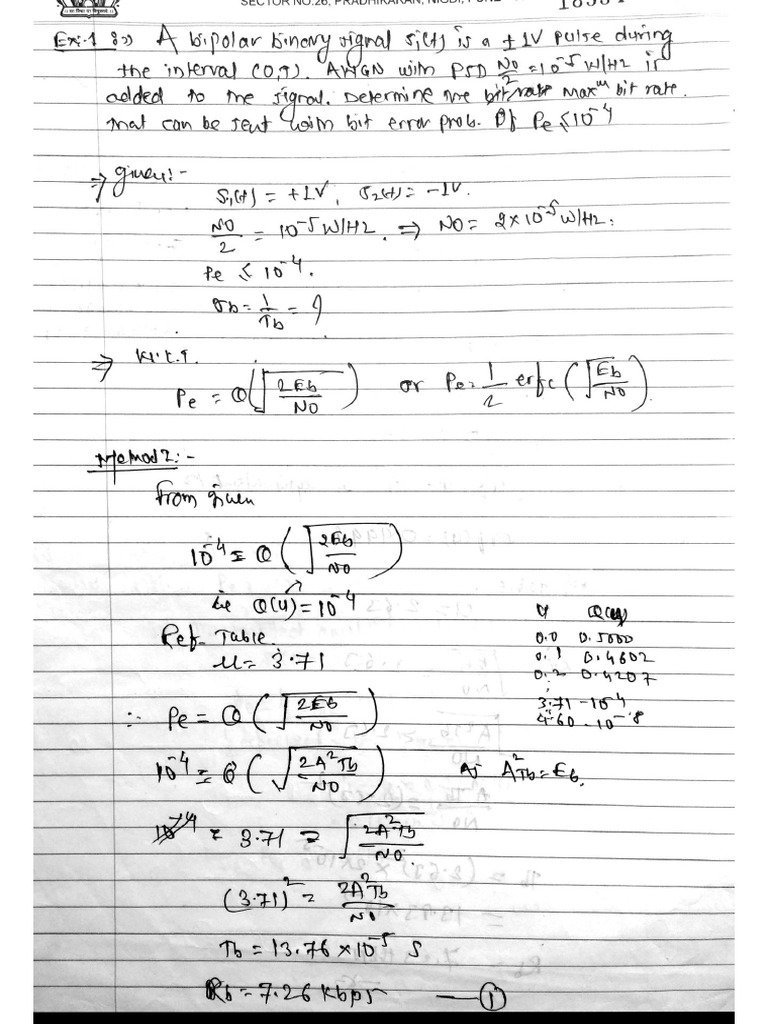 SECTOR NO.26, PRADHIKARAN, NIGDI, PUNE
Ex:-1 :⇒ A bipolar binary signal si(t) is a ±1V pulse during
the interval (0,T). AWGN with PSD N0/2 = 10^-5 W/Hz is
added to the signal. Determine the bit rate max^m bit rate.
that can be sent with bit error prob. Of Pe ≤ 10^-4
⇒ given:-
S1(t) = +1V, S2(t) = -1V.
N0/2 = 10^-5 W/Hz. ⇒ N0 = 2×10^-5 W/Hz.
Pe ≤ 10^-4.
rb = 1/Tb = ?
⇒ W.K.T.
Pe = Q(√(2Eb/N0)) or Pe = 1/2 erfc(√(Eb/N0)).
Method 1:-
from given
10^-4 = Q(√(2Eb/N0))
ie Q(u) = 10^-4
Ref. Table.
u = 3.71
u Q(u)
0.0 0.5000
0.1 0.4602
0.2 0.4207
3.71 - 10^-4
4.60 - 10^-8
∴ Pe = Q(√(2Eb/N0))
10^-4 = Q(√(2A²Tb/N0)) As A²Tb = Eb.
= 3.71 = √(2A²Tb/N0).
(3.71)² = 2A²Tb/N0
Tb = 13.76 × 10^-5 s
Rb = 7.26 kbps — ①